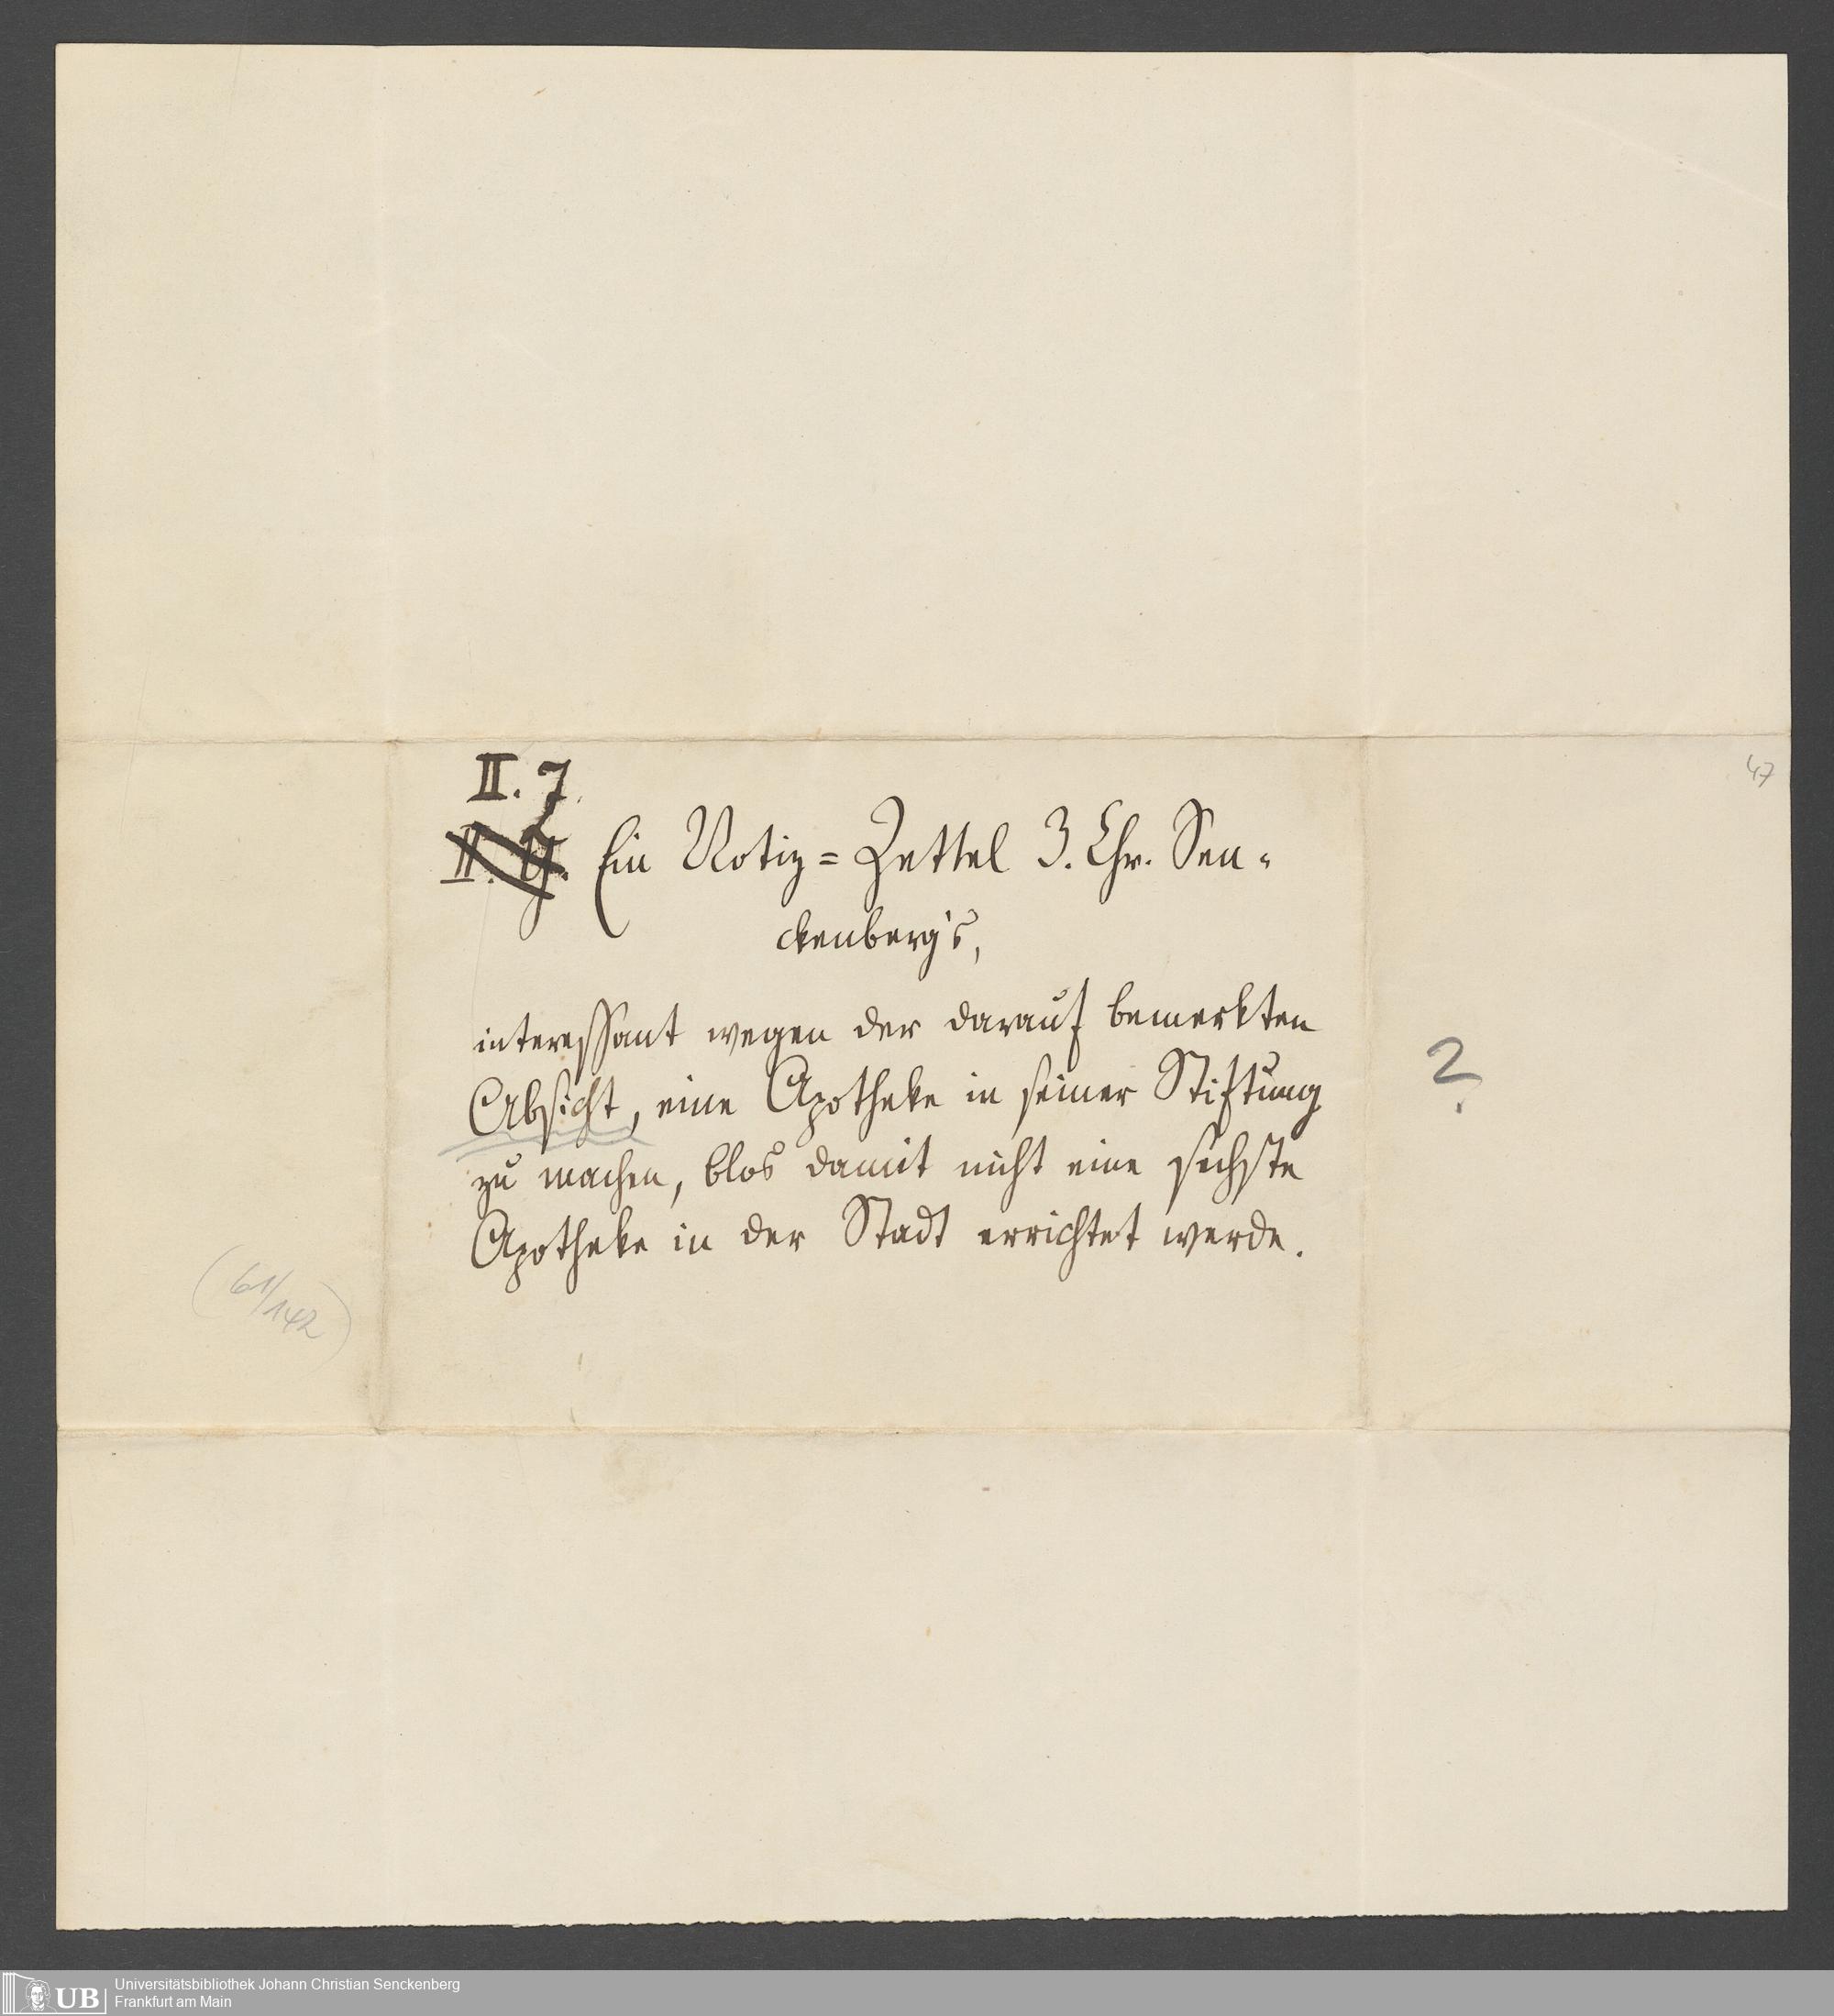 47
II. 7.
Ein Notiz=Zettel J. Chr. Sen-
ckenberg's,
interessant wegen der darauf bemerkten
Absicht, eine Apotheke in seiner Stiftung
?
zu machen, blos damit nicht eine sechste
Apotheke in der Stadt errichtet werde.
(61/142)
UB Universitätsbibliothek Johann Christian Senckenberg
Frankfurt am Main